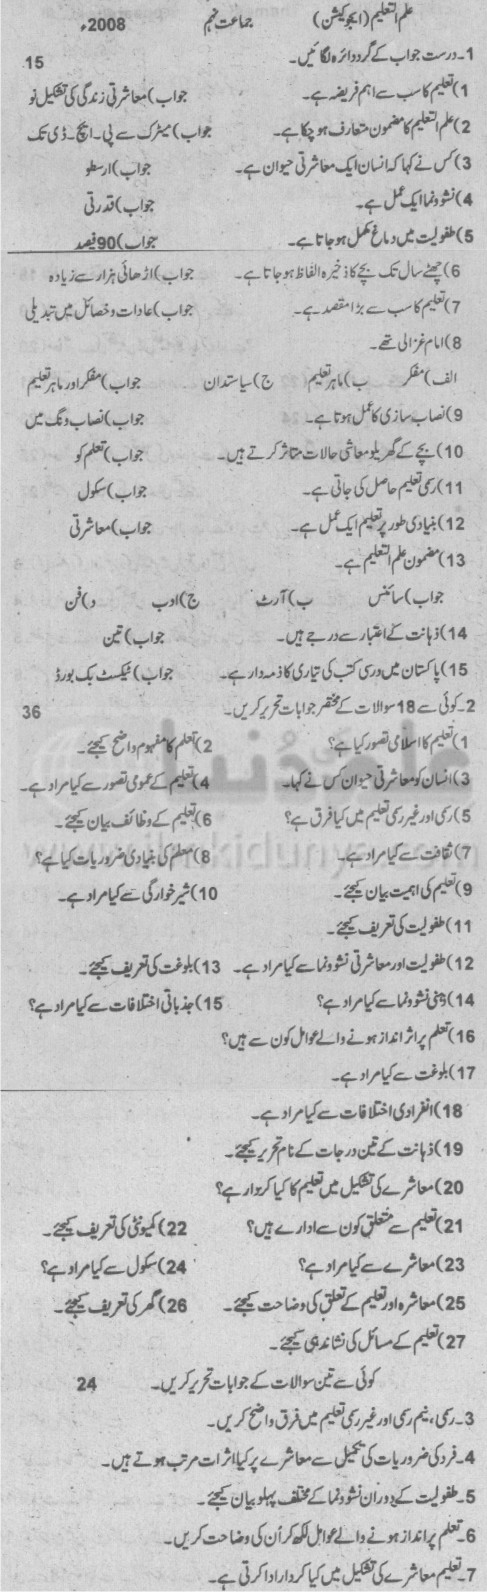 علم التعلیم (ایجوکیشن) جماعت نہم 2008ء
1۔ درست جواب کے گرد دائرہ لگائیں۔ 15
1) تعلیم کا سب سے اہم فریضہ ہے۔ جواب) معاشرتی زندگی کی تشکیل نو
2) علم التعلیم کا مضمون متعارف ہو چکا ہے۔ جواب) میٹرک سے پی۔ایچ۔ڈی تک
3) کس نے کہا کہ انسان ایک معاشرتی حیوان ہے۔ جواب) ارسطو
4) نشوونما ایک عمل ہے۔ جواب) قدرتی
5) طفولیت میں دماغ مکمل ہو جاتا ہے۔ جواب) 90 فیصد
6) چھٹے سال تک بچے کا ذخیرہ الفاظ ہو جاتا ہے۔ جواب) اڑھائی ہزار سے زیادہ
7) تعلیم کا سب سے بڑا مقصد ہے۔ جواب) عادات و خصائل میں تبدیلی
8) امام غزالی تھے۔
الف) مفکر ب) ماہر تعلیم ج) سیاستدان جواب) مفکر اور ماہر تعلیم
9) نصاب سازی کا عمل ہوتا ہے۔ جواب) نصاب ونگ میں
10) بچے کے گھریلو معاشی حالات متاثر کرتے ہیں۔ جواب) تعلم کو
11) رسمی تعلیم حاصل کی جاتی ہے۔ جواب) سکول
12) بنیادی طور پر تعلیم ایک عمل ہے۔ جواب) معاشرتی
13) مضمون علم التعلیم ہے۔
جواب) سائنس ب) آرٹ ج) ادب د) فن
14) ذہانت کے اعتبار سے درجے ہیں۔ جواب) تین
15) پاکستان میں درسی کتب کی تیاری کا ذمہ دار ہے۔ جواب) ٹیکسٹ بک بورڈ
2۔ کوئی سے 18 سوالات کے مختصر جوابات تحریر کریں۔ 36
1) تعلیم کا اسلامی تصور کیا ہے؟ 2) تعلم کا مفہوم واضح کیجئے۔
3) انسان کو معاشرتی حیوان کس نے کہا۔ 4) تعلیم کے عمومی تصور سے کیا مراد ہے۔
5) رسمی اور غیر رسمی تعلیم میں کیا فرق ہے؟ 6) تعلیم کے وظائف بیان کیجئے۔
7) ثقافت سے کیا مراد ہے۔ 8) معلم کی بنیادی ضروریات کیا ہے؟
9) تعلیم کی اہمیت بیان کیجئے۔ 10) شیر خوارگی سے کیا مراد ہے۔
11) طفولیت کی تعریف کیجئے۔
12) طفولیت اور معاشرتی نشوونما سے کیا مراد ہے۔ 13) بلوغت کی تعریف کیجئے۔
14) ذہنی نشوونما سے کیا مراد ہے؟ 15) جذباتی اختلافات سے کیا مراد ہے؟
16) تعلم پر اثر انداز ہونے والے عوامل کون سے ہیں؟
17) بلوغت سے کیا مراد ہے۔
18) انفرادی اختلافات سے کیا مراد ہے۔
19) ذہانت کے تین درجات کے نام تحریر کیجئے۔
20) معاشرے کی تشکیل میں تعلیم کا کیا کردار ہے؟
21) تعلیم سے متعلق کون سے ادارے ہیں؟ 22) کمیونٹی کی تعریف کیجئے۔
23) معاشرے سے کیا مراد ہے؟ 24) سکول سے کیا مراد ہے؟
25) معاشرہ اور تعلیم کے تعلق کی وضاحت کیجئے۔ 26) گھر کی تعریف کیجئے۔
27) تعلیم کے مسائل کی نشاندہی کیجئے۔
کوئی سے تین سوالات کے جوابات تحریر کریں۔ 24
3۔ رسمی، نیم رسمی اور غیر رسمی تعلیم میں فرق واضح کریں۔
4۔ فرد کی ضروریات کی تکمیل سے معاشرے پر کیا اثرات مرتب ہوتے ہیں۔
5۔ طفولیت کے دوران نشوونما کے مختلف پہلو بیان کیجئے۔
6۔ تعلم پر انداز ہونے والے عوامل لکھ کر اُن کی وضاحت کریں۔
7۔ تعلیم معاشرے کی تشکیل میں کیا کردار ادا کرتی ہے۔